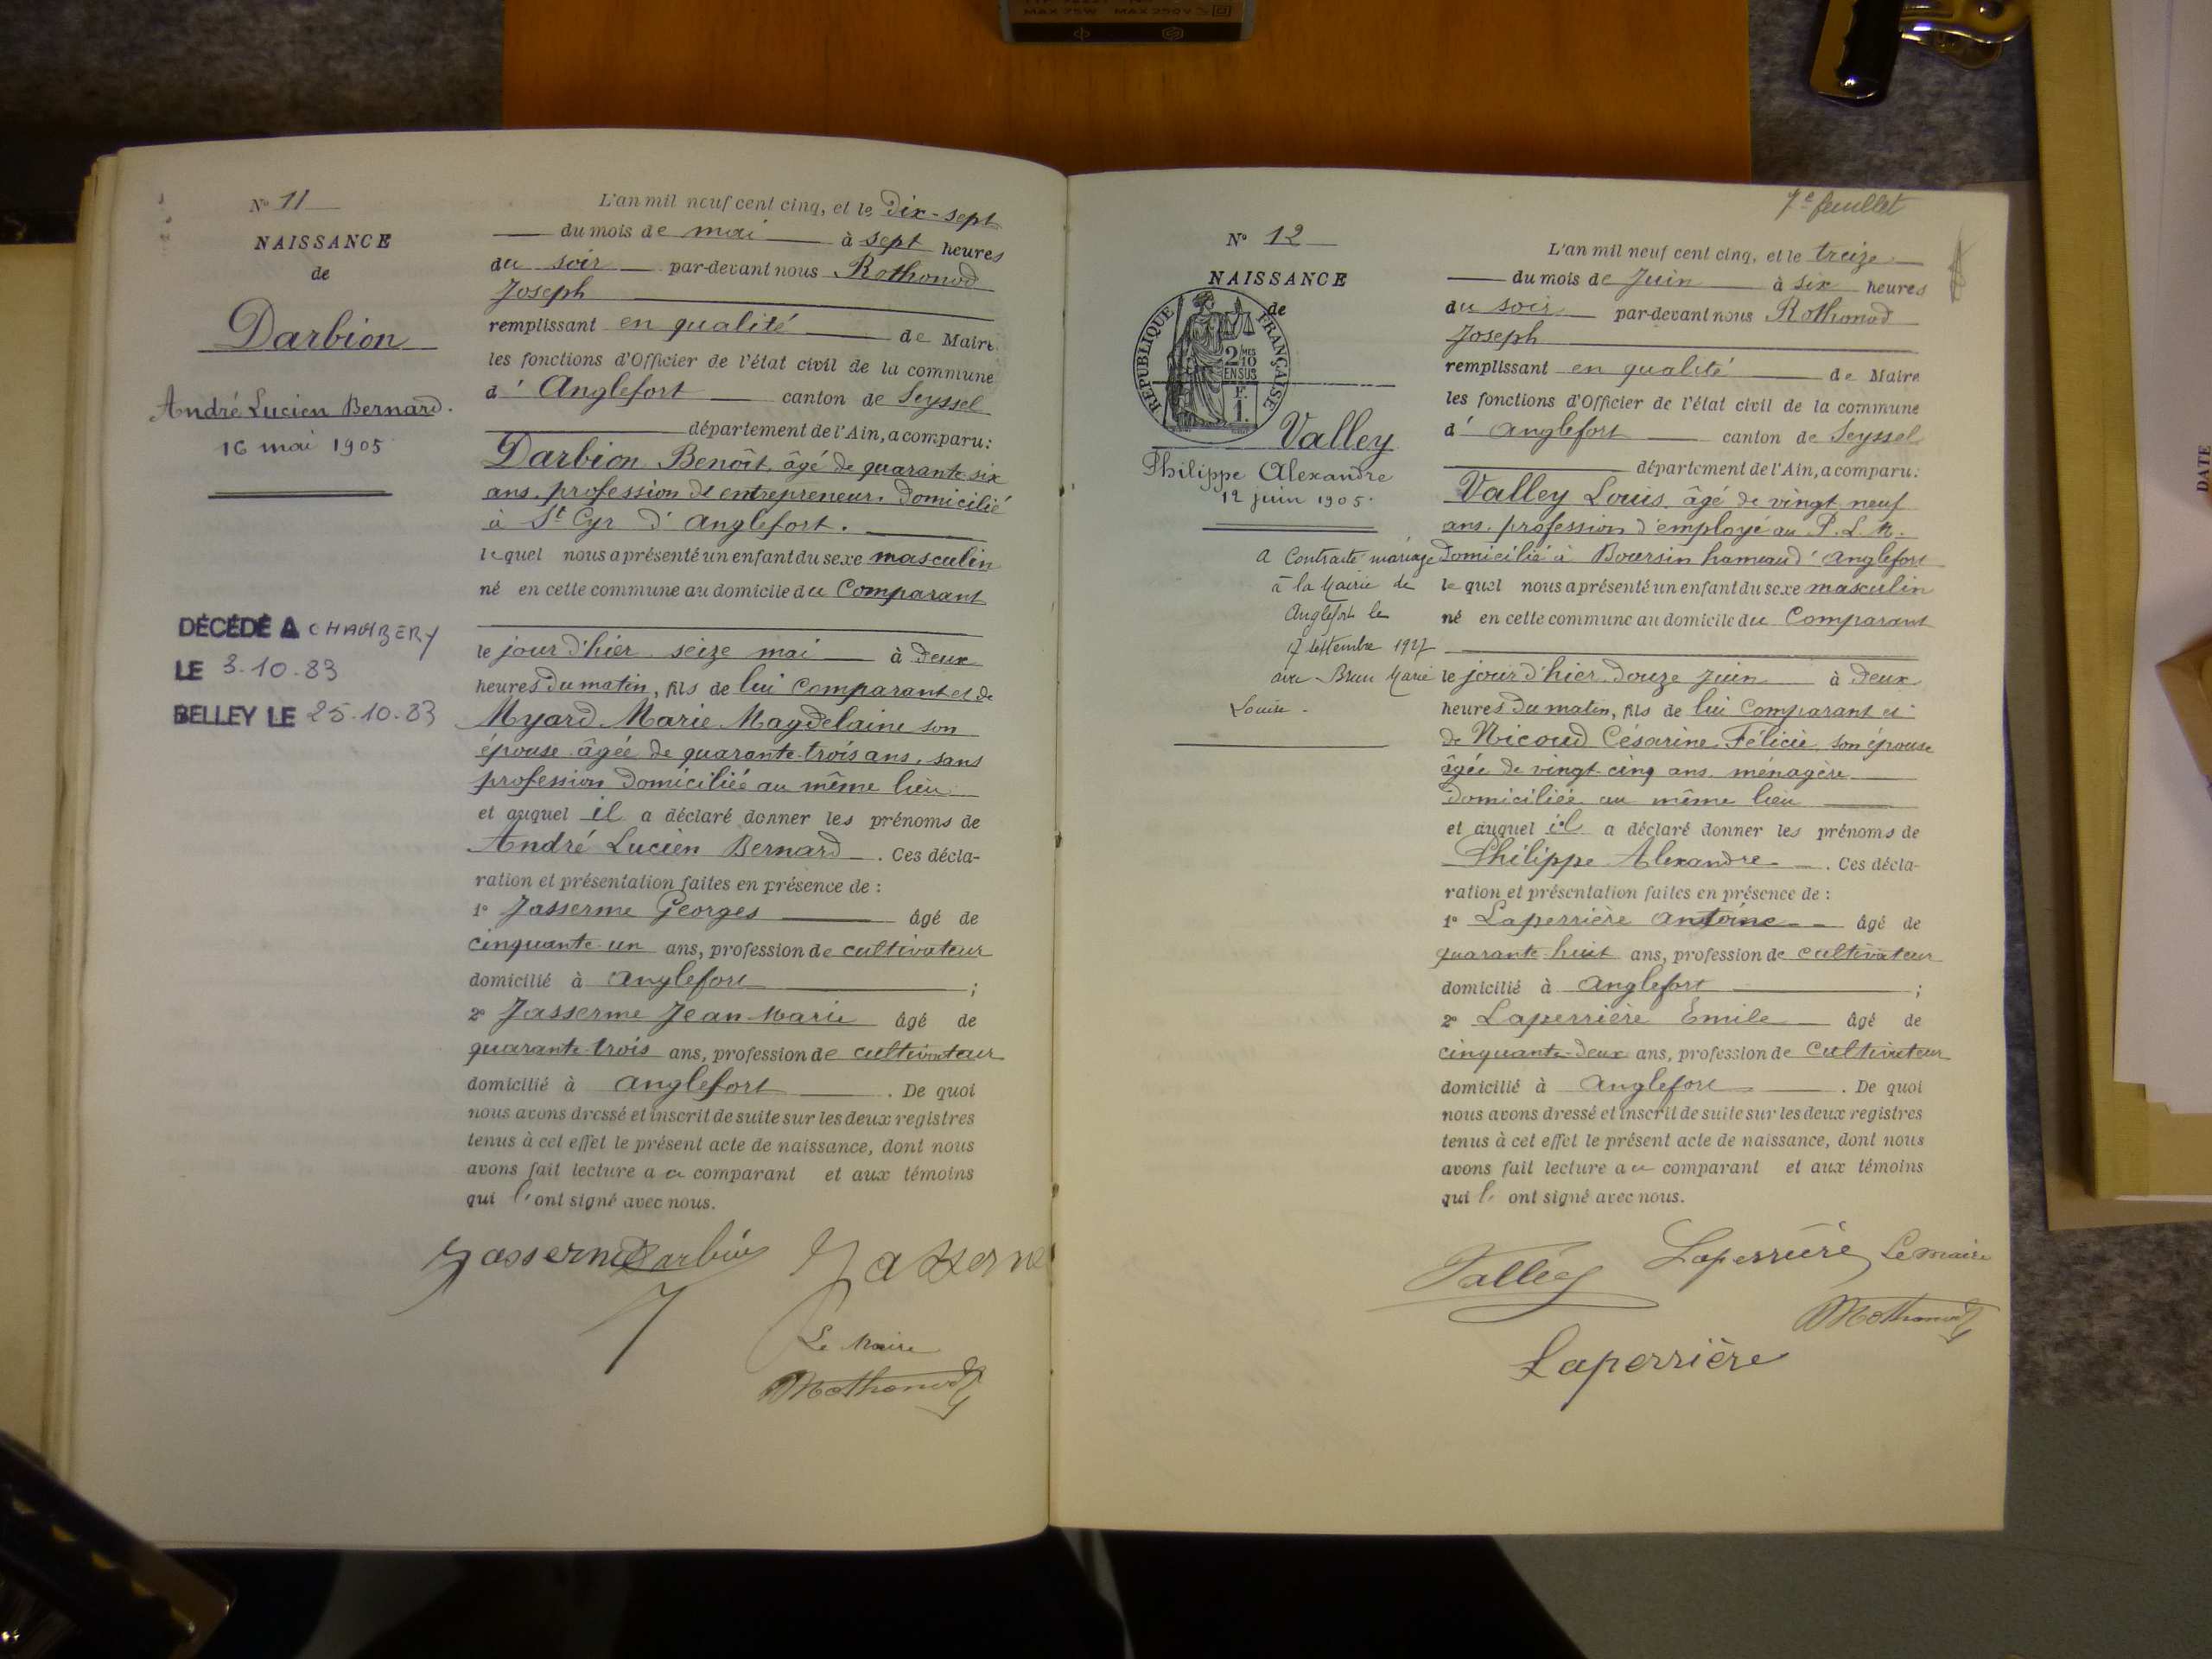 MAX 75W MAX 250V
N° 11
NAISSANCE
de
Darbion
André Lucien Bernard.
16 mai 1905
DÉCÉDÉ A CHAMBERY
LE 3.10.83
BELLEY LE 25.10.83
L'an mil neuf cent cinq, et le dix-sept
du mois de mai à sept heures
du soir par-devant nous Rothonod
Joseph
remplissant en qualité de Maire
les fonctions d'Officier de l'état civil de la commune
d' Anglefort canton de Seyssel
département de l'Ain, a comparu:
Darbion Benoît, âgé de quarante-six
ans, profession d'entrepreneur, domicilié
à St Cyr d'Anglefort.
lequel nous a présenté un enfant du sexe masculin
né en cette commune au domicile du Comparant
le jour d'hier seize mai à deux
heures du matin, fils de lui Comparant et de
Myard Marie Magdelaine son
épouse âgée de quarante-trois ans, sans
profession domiciliée au même lieu
et auquel il a déclaré donner les prénoms de
André Lucien Bernard. Ces décla-
ration et présentation faites en présence de :
1° Jasserme Georges âgé de
cinquante-un ans, profession de cultivateur
domicilié à Anglefort ;
2° Jasserme Jean-Marie âgé de
quarante-trois ans, profession de cultivateur
domicilié à Anglefort. De quoi
nous avons dressé et inscrit de suite sur les deux registres
tenus à cet effet le présent acte de naissance, dont nous
avons fait lecture au comparant et aux témoins
qui l'ont signé avec nous.
Jasserme Darbion Jasserme
Le Maire
Rothonod
7e feuillet
N° 12
NAISSANCE
de
RÉPUBLIQUE FRANÇAISE
2/10 MES
EN SUS
F.
1.
Valley
Philippe Alexandre
12 juin 1905.
a Contracté mariage
à la Mairie de
Anglefort le
17 septembre 1927
avec Brun Marie
Louise.
L'an mil neuf cent cinq, et le treize
du mois de Juin à six heures
du soir par-devant nous Rothonod
Joseph
remplissant en qualité de Maire
les fonctions d'Officier de l'état civil de la commune
d' Anglefort canton de Seyssel
département de l'Ain, a comparu:
Valley Louis, âgé de vingt-neuf
ans, profession d'employé au P.L.M.
domicilié à Boursin hameau d'Anglefort
lequel nous a présenté un enfant du sexe masculin
né en cette commune au domicile du Comparant
le jour d'hier douze Juin à deux
heures du matin, fils de lui Comparant et
de Nicoud Césarine Félicie, son épouse
âgée de vingt-cinq ans ménagère
domiciliée au même lieu
et auquel il a déclaré donner les prénoms de
Philippe Alexandre. Ces décla-
ration et présentation faites en présence de :
1° Laperrière Antoine âgé de
quarante-huit ans, profession de cultivateur
domicilié à Anglefort ;
2° Laperrière Emile âgé de
cinquante-deux ans, profession de Cultivateur
domicilié à Anglefort. De quoi
nous avons dressé et inscrit de suite sur les deux registres
tenus à cet effet le présent acte de naissance, dont nous
avons fait lecture au comparant et aux témoins
qui l'ont signé avec nous.
Valley Laperrière Le Maire
Rothonod
Laperrière
DATE